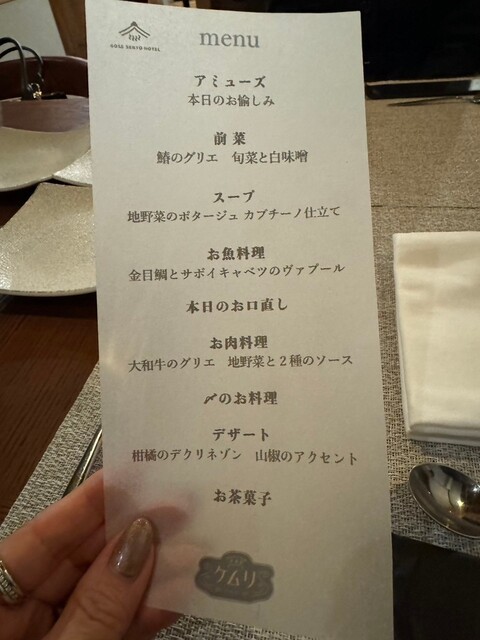 menu
アミューズ
本日のお愉しみ
前菜
鰆のグリエ 旬菜と白味噌
スープ
地野菜のポタージュ カプチーノ仕立て
お魚料理
金目鯛とサボイキャベツのヴァプール
本日のお口直し
お肉料理
大和牛のグリエ 地野菜と2種のソース
〆のお料理
デザート
柑橘のデクリネゾン 山椒のアクセント
お茶菓子
ケムリ